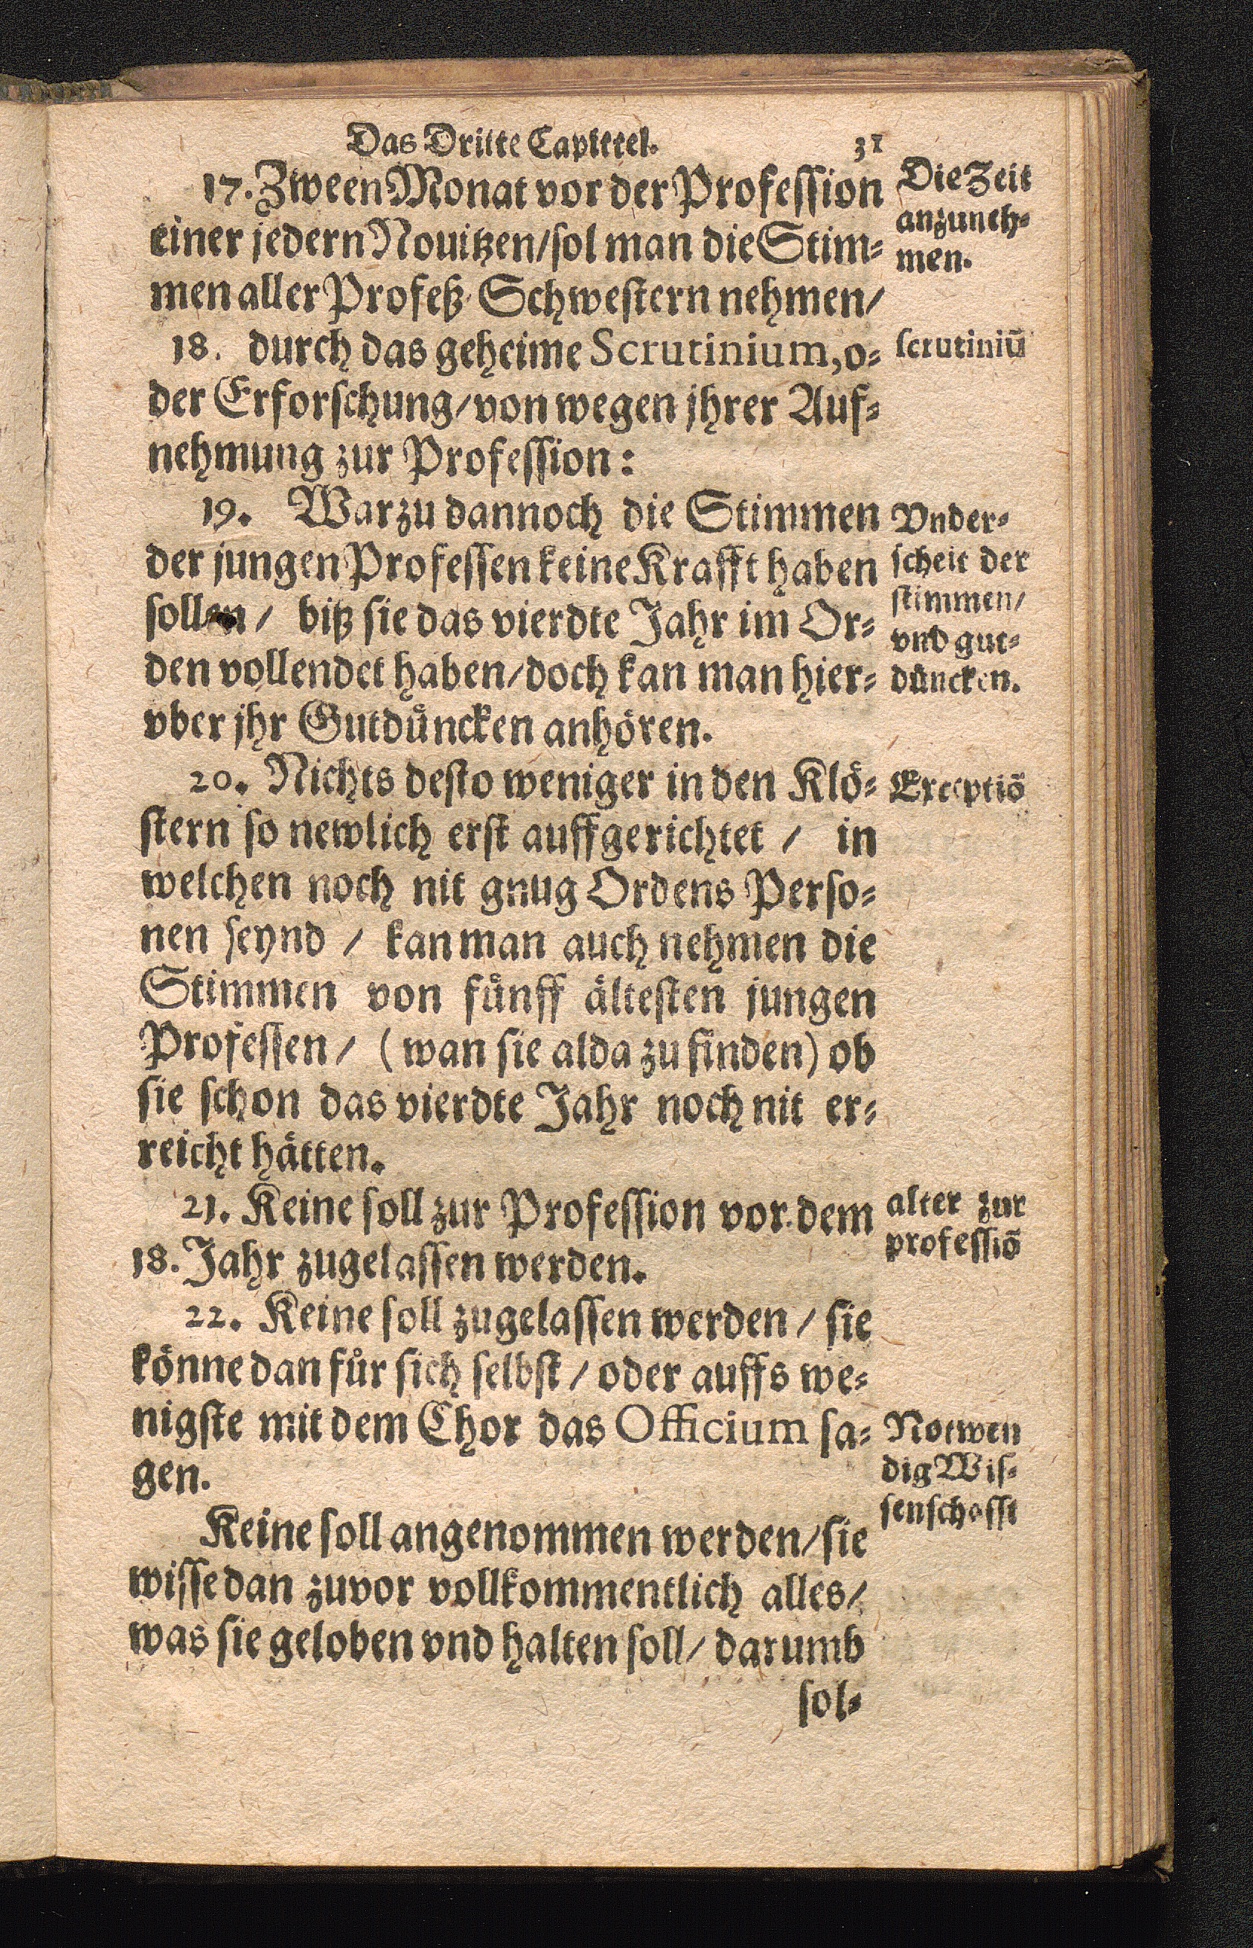 Das Dritte Capittel. 31
17. Zween Monat vor der Profession
einer jedern Novitzen/sol man die Stim⸗
men aller Profeß Schwestern nehmen/
18. durch das geheime Scrutinium, o⸗
der Erforschung/von wegen jhrer Auf⸗
nehmung zur Profession:
19. Warzu dannoch die Stimmen
der jungen Professen keine Krafft haben
sollen/ biß sie das vierdte Jahr im Or⸗
den vollendet haben/doch kan man hier⸗
vber jhr Gutdüncken anhören.
20. Nichts desto weniger in den Klö⸗
stern so newlich erst auffgerichtet / in
welchen noch nit gnug Ordens Perso⸗
nen seynd / kan man auch nehmen die
Stimmen von fünff ältesten jungen
Professen/ (wan sie alda zu finden) ob
sie schon das vierdte Jahr noch nit er⸗
reicht hätten.
21. Keine soll zur Profession vor dem
18. Jahr zugelassen werden.
22. Keine soll zugelassen werden / sie
könne dan für sich selbst / oder auffs we⸗
nigste mit dem Chor das Officium sa⸗
gen.
Keine soll angenommen werden/sie
wisse dan zuvor vollkommentlich alles/
was sie geloben vnd halten soll/ darumb
sol⸗
Die Zeit
anzuneh⸗
men.
scrutiniū
Vnder⸗
scheit der
stimmen/
vnd gut⸗
düncken.
Exceptiō
alter zur
professiō
Notwen
dig Wis⸗
senschafft